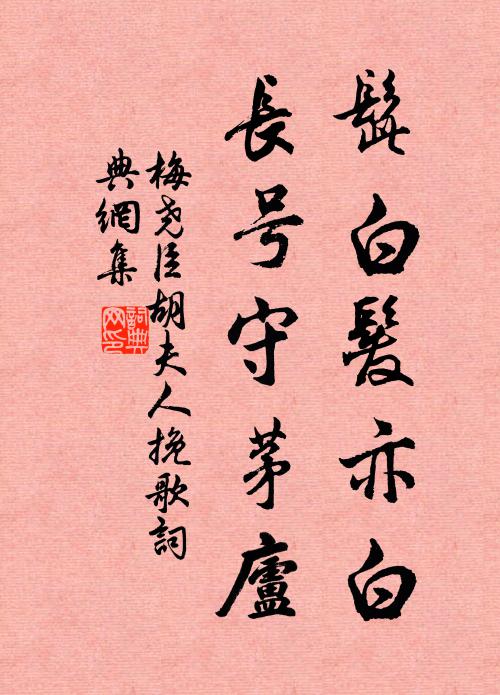 髭白髮亦白
長号守茅廬
梅尧臣胡夫人挽歌詞
典網集
詞典網印